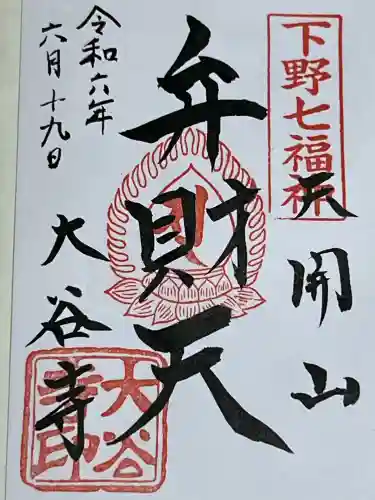 下野七福神
天開山
弁財天
大谷寺
令和六年
六月十九日
大谷寺印